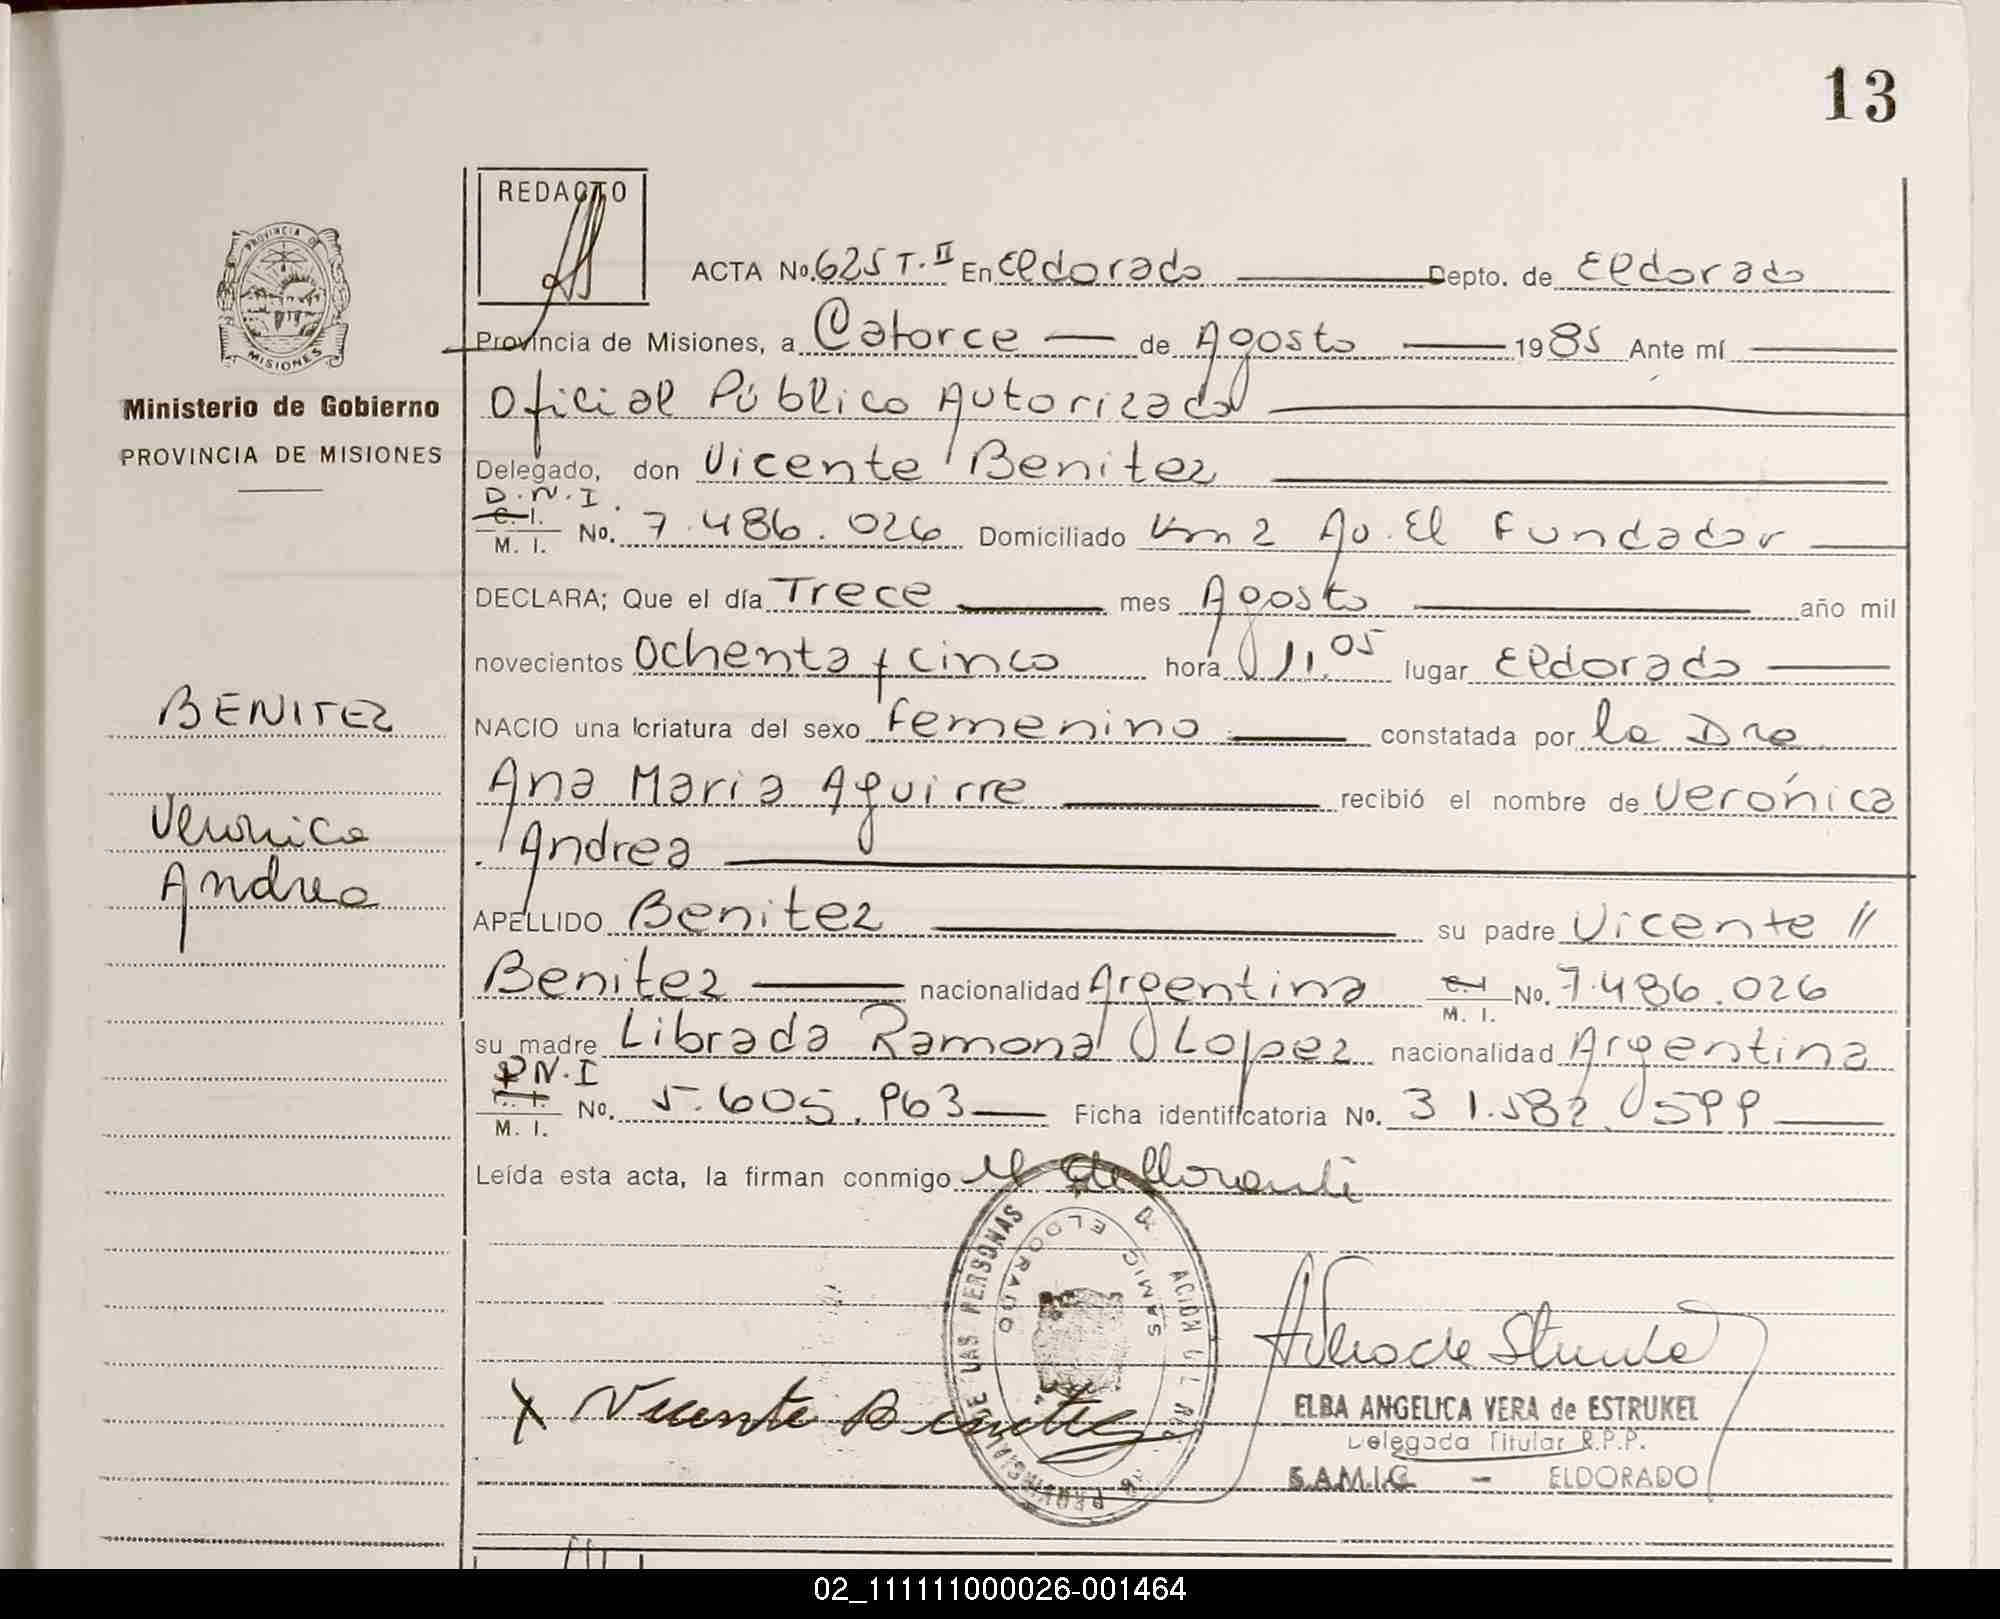 13
REDACTO
PROVINCIA DE
MISIONES
Ministerio de Gobierno
PROVINCIA DE MISIONES
BENITEZ
Veronica
Andrea
ACTA No. 625 T. II En Eldorado Depto. de Eldorado
Provincia de Misiones, a Catorce de Agosto 1985 Ante mí
Oficial Público Autorizado
Delegado, don Vicente Benitez
D.N.I.
C. I.
M. I. No. 7.486.026 Domiciliado Km 2 Av. El Fundador
DECLARA; Que el día Trece mes Agosto año mil
novecientos Ochenta y cinco hora 11.05 lugar Eldorado
NACIO una criatura del sexo Femenino constatada por la Dra
Ana Maria Aguirre recibió el nombre de Verónica
Andrea
APELLIDO Benitez su padre Vicente //
Benitez nacionalidad Argentina C.I M. I. No. 7.486.026
su madre Librada Ramona Lopez nacionalidad Argentina
D.N.I
C. I.
M. I. No. 5.605.963 Ficha identificatoria No. 31.582.599
Leída esta acta, la firman conmigo el declarante
PROVINCIAL DE LAS PERSONAS
ELDORADO
MISIONES
X Vicente Benitez
ELBA ANGELICA VERA de ESTRUKEL
Delegada Titular R.P.P.
S.A.M.I.C. - ELDORADO
02_111111000026-001464